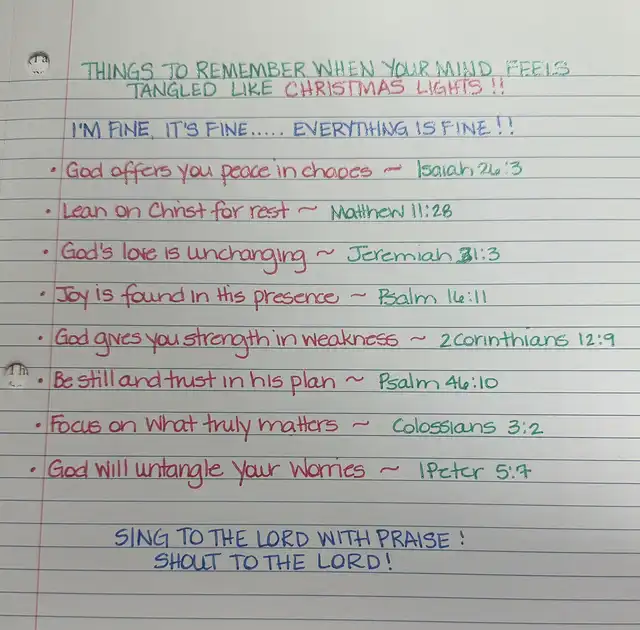 THINGS TO REMEMBER WHEN YOUR MIND FEELS
TANGLED LIKE CHRISTMAS LIGHTS !!
I'M FINE, IT'S FINE..... EVERYTHING IS FINE !!
• God offers you peace in chaoes ~ Isaiah 26:3
• Lean on Christ for rest ~ Matthew 11:28
• God's love is unchanging ~ Jeremiah 31:3
• Joy is found in His presence ~ Psalm 16:11
• God gives you strength in weakness ~ 2 Corinthians 12:9
• Be still and trust in his plan ~ Psalm 46:10
• Focus on what truly matters ~ Colossians 3:2
• God will untangle your worries ~ 1 Peter 5:7
SING TO THE LORD WITH PRAISE !
SHOUT TO THE LORD !